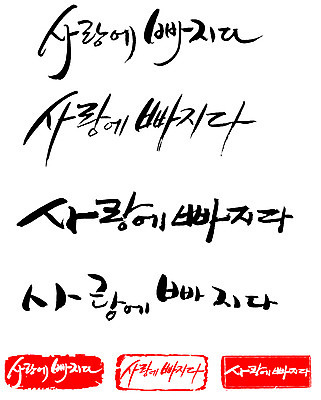 사랑에 빠지다
사랑에 빠지다
사랑에 빠지다
사랑에 빠지다
사랑에 빠지다 사랑에 빠지다 사랑에 빠지다